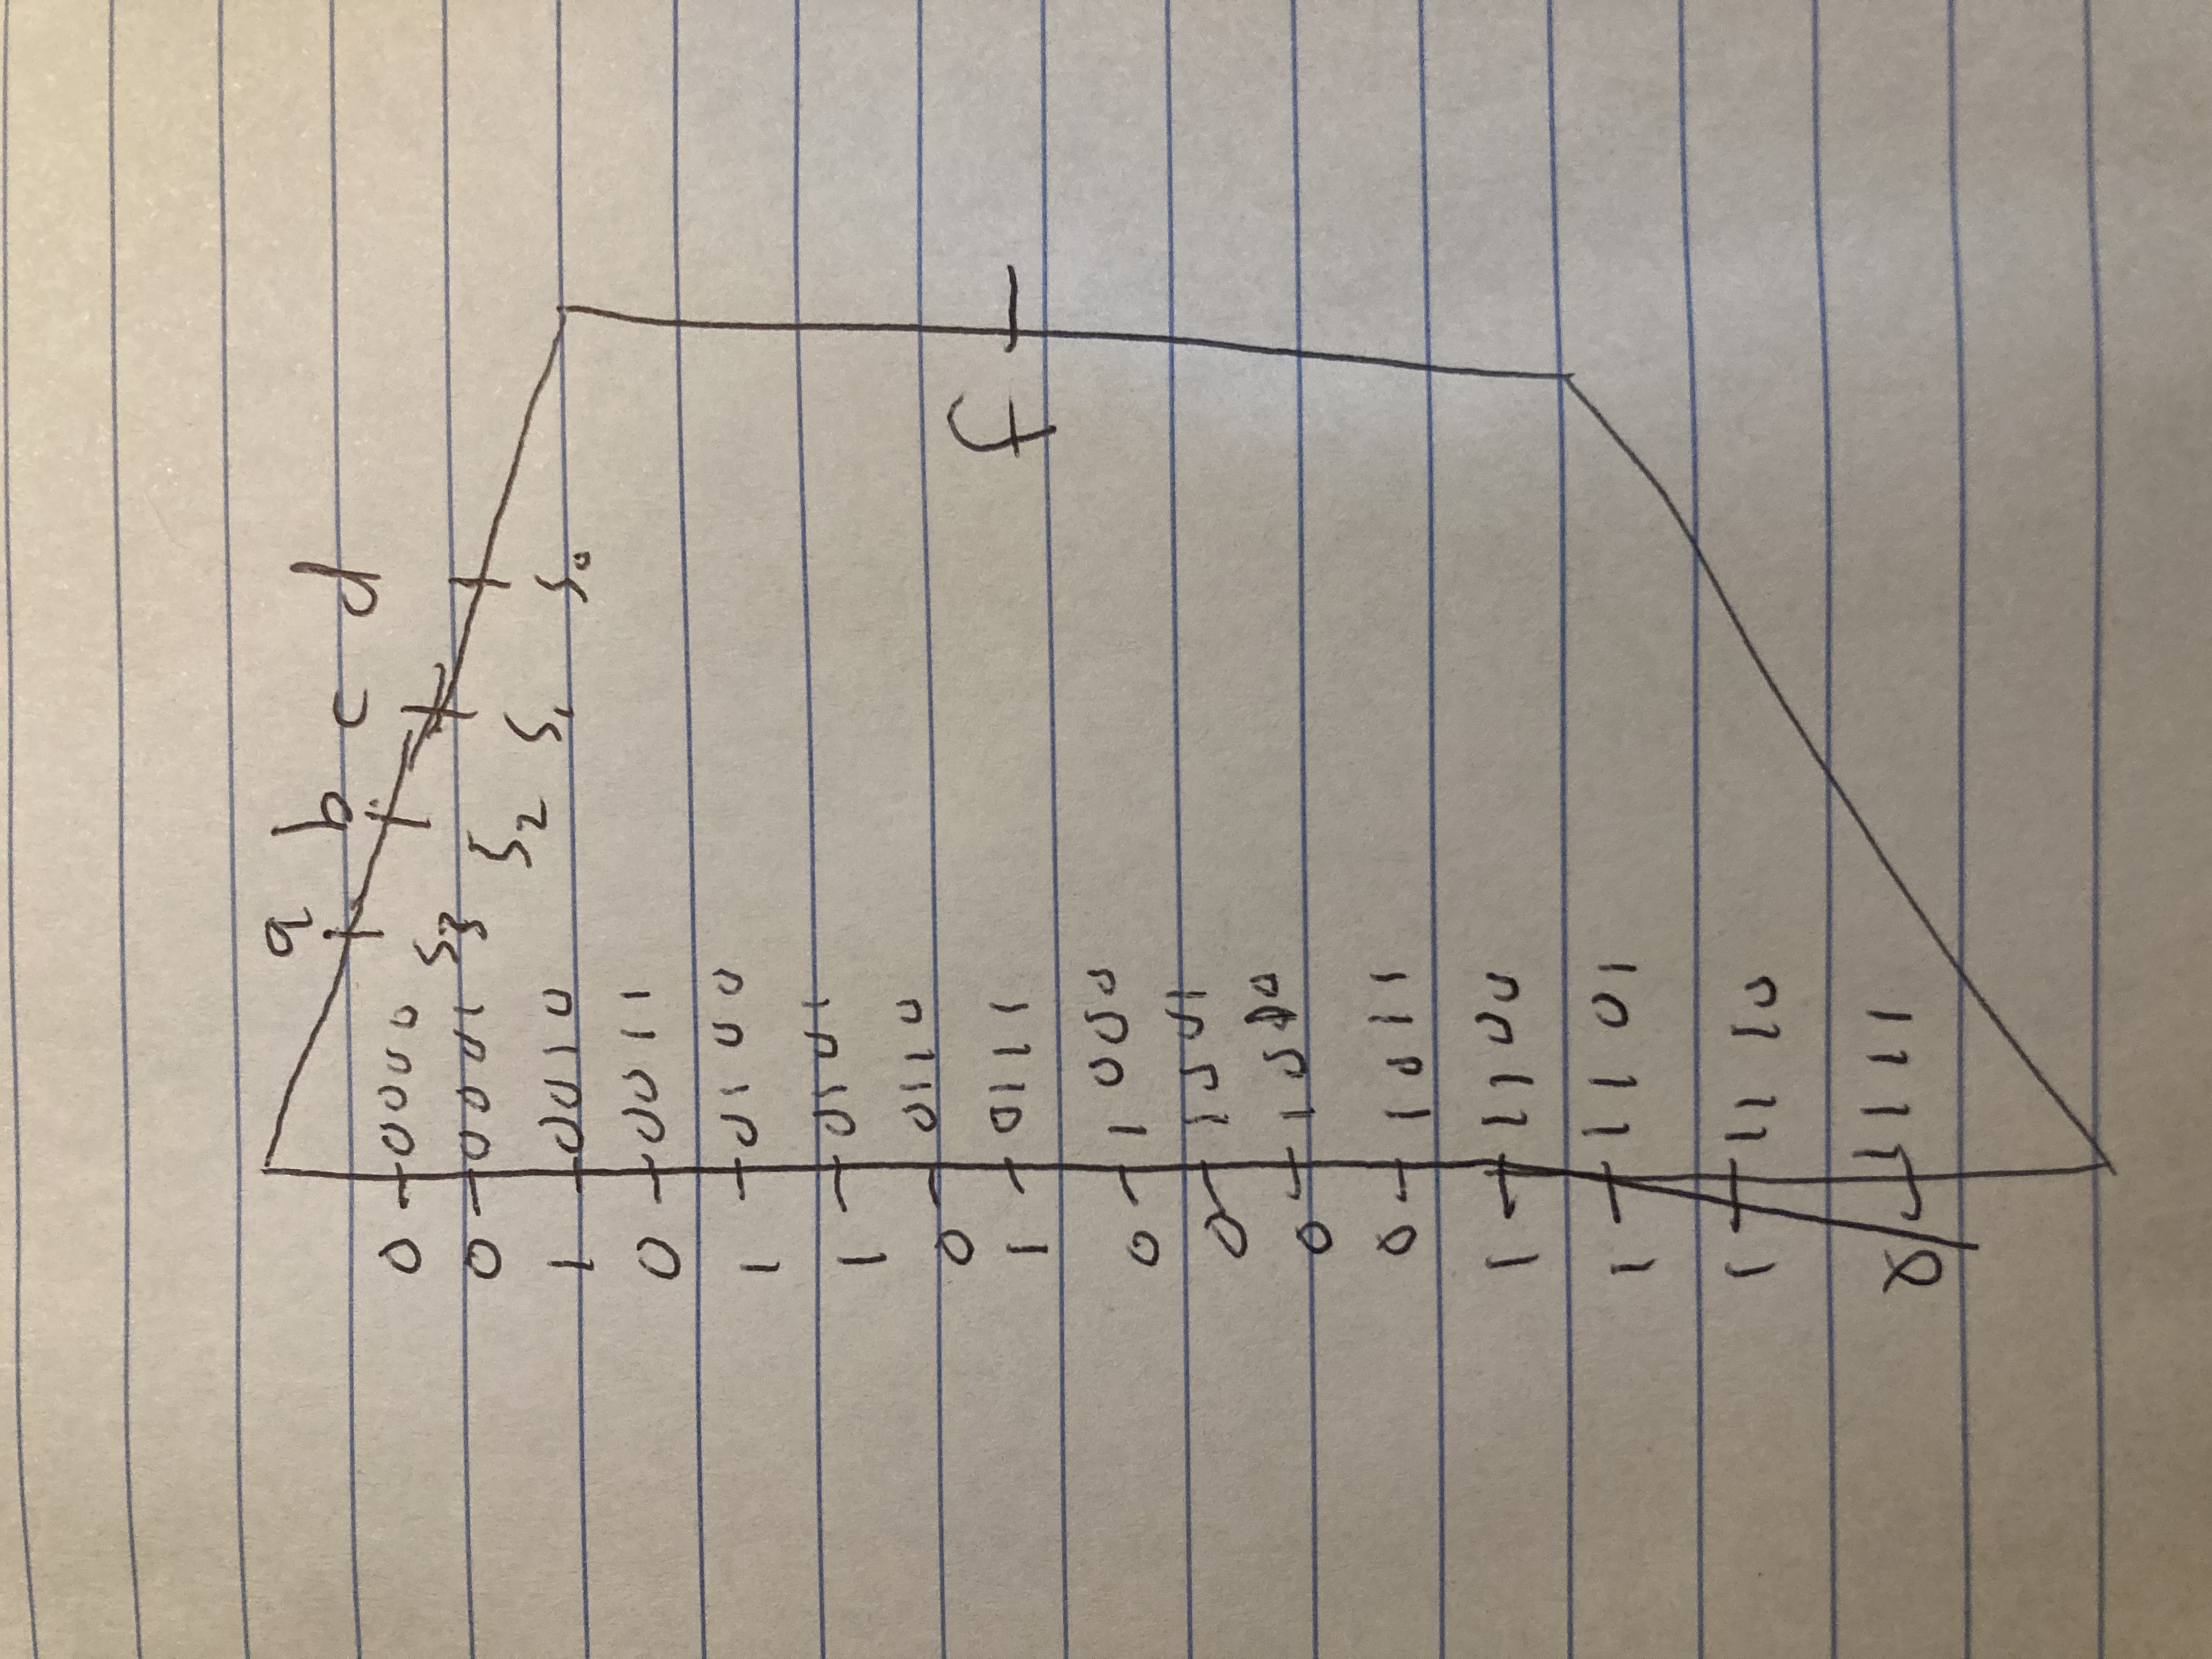 a b c d
0 0000
S3
0 0001
S2 S1 S0
1 0010
0 0011
1 0100
1 0101
0 0110
1 0111
f
0 1000
0 1001
0 1010
0 1011
1 1100
1 1101
1 1110
0 1111